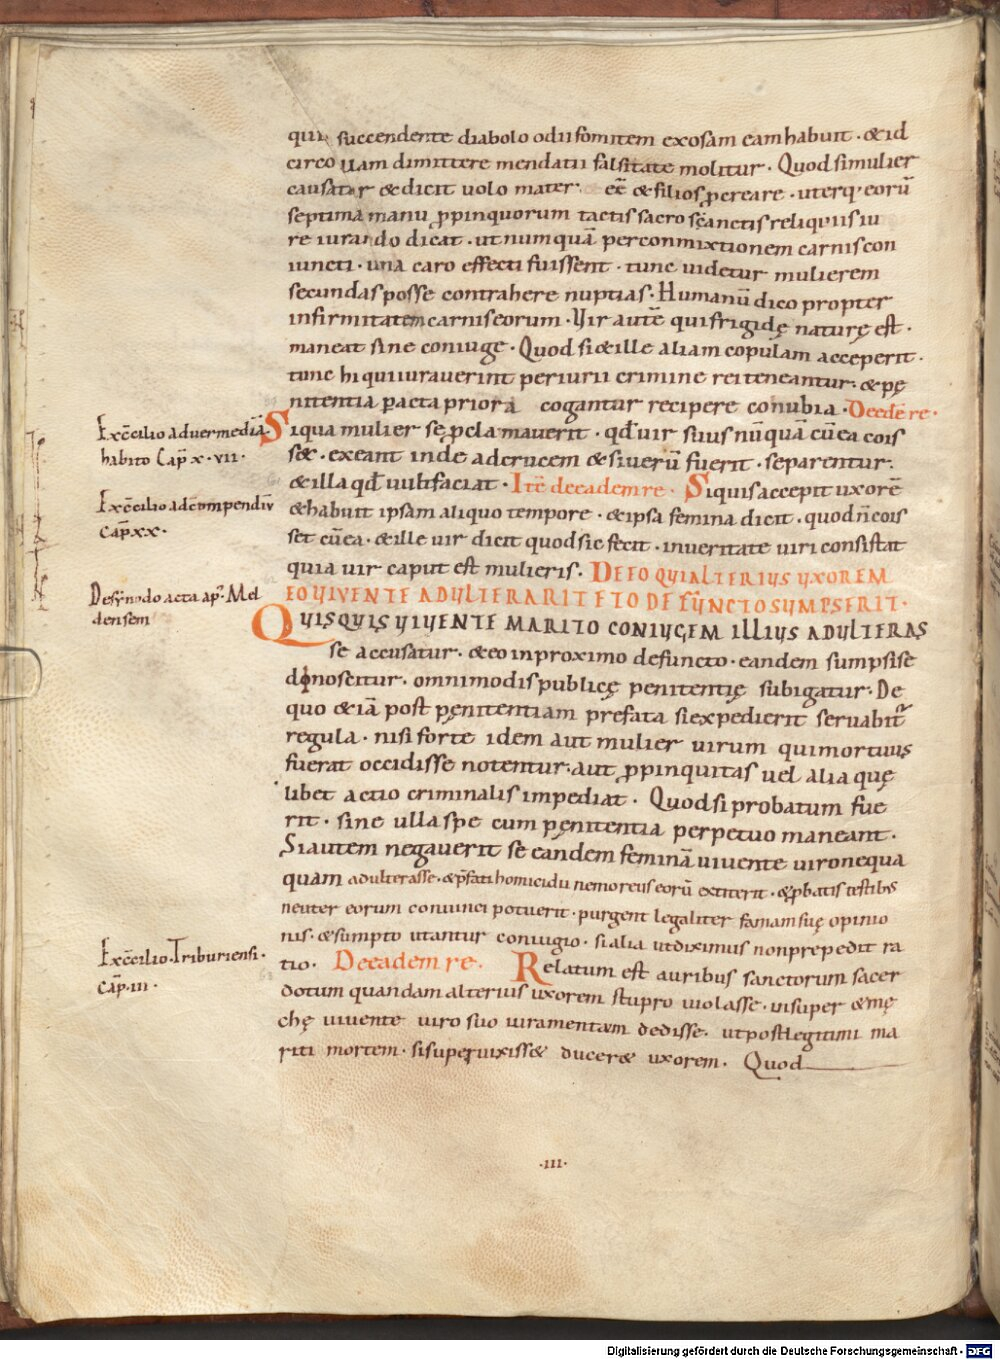 quia succendente diabolo odii fomitem exosam eam habuit · & id
circo uam dimittere mendatii falsitate molitur · Quod si mulier
causatur & dicit uolo mater · eē & filios ꝓcreare · uterq; eorū
septima manu ꝓpinquorum tactis sacrosc̄anctis reliquiis iu
re iurando dicat · ut numquā per conmixtionem carnis con
iuncti · una caro effecti fuissent · tunc uidetur mulierem
secundas posse contrahere nuptias · Humanū dico propter
infirmitatem carnis eorum · Vir autē qui frigidę naturę est ·
maneat sine coniuge · Quod si & ille aliam copulam acceperit ·
tunc hi qui iuraverint periurii crimine rei teneantur · & pę
nitentia ꝑacta priora cogantur recipere conubia · De ead̄ re ·
Ex c̄cilio ad uermediā
habito Cap̄ x·vii·
Siqua mulier se ꝓclamauerit · qd̄ uir suus nūquā cū ea cois
s& · exeant inde ad crucem & si uerū fuerit · separentur ·
& illa qd̄ uult faciat · Itē de eadem re · Siquis accepit uxorē
Ex c̄cilio ad c̄mpendiū
Cap̄ xx·
& habuit ipsam aliquo tempore · & ipsa femina dicit · quod n̄ cois
set cū ea · & ille uir dicit quod sic fecit · in ueritate uiri consistat
quia uir caput est mulieris · DE EO QUI ALTERIUS UXOREM
De synodo acta ap̄ Mel
densem
EO VIVENTE ADULTERARIT ET O DEFUNCTO SUMPSERIT ·
QUISQUIS VIVENTE MARITO CONIUGEM ILLIUS ADULTERAS
se accusatur · & eo in proximo defuncto · eandem sumpsise
dinoscitur · omnimodis publicę penitentię subigatur · De
quo & iā post pęnitentiam prefata si expedierit seruabitr
regula · nisi forte idem aut mulier uirum qui mortuus
fuerat occidisse notentur · aut ꝓpinquitas uel alia quę
libet actio criminalis impediat · Quod si probatum fue
rit · sine ulla spe cum pęnitentia perpetuo maneant ·
Si autem negauerit se eandem feminā uiuente uiro nequa
quam adulterasse · & p̄fati homicidii nemo reus eorū extiterit · & ꝓbatis testibus
neuter eorum conuinci potuerit · purgent legaliter famam suę opinio
nis · & sumpto utantur coniugio · si alia ut diximus non prepedit ra
Ex c̄cilio Triburiensi ·
Cap̄ · iii ·
tio · De eadem re · Relatum est auribus sanctorum sacer
dotum quandam alterius uxorem stupro uiolasse · insuper & mę
chę uiuente uiro suo iuramentum dedisse · ut post legitimi ma
riti mortem · si superuixiss& ducer& uxorem · Quod
·III·
Digitalisierung gefördert durch die Deutsche Forschungsgemeinschaft · DFG